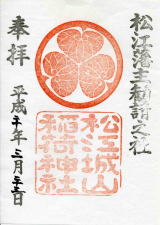 松江藩主勧請之社
奉拝
松江城山
稲荷神社
平成二十年三月二十三日